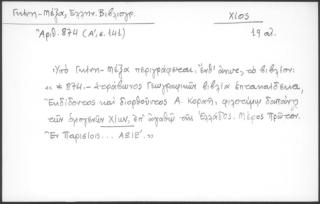 Γκίνη - Μέξα, Ελλην. Βιβλιογρ.
Χίος
Ἀριθ. 874 (Α', σ. 141)
19 αἰ.
Ὑπό Γκίνη - Μέξα περιγράφεται ἐκθ' ἅπαν, τὸ βιβλίον:
« * 874. - Στράβωνος Γεωγραφικῶν βιβλία ἑπτακαίδεκα,
Ἐκδίδοντος καὶ διορθοῦντος Α. Κοραῆ, φιλοτίμῳ δαπάνῃ
τῶν ὁμογενῶν Χίων, ἐπ' ἀγαθῷ τῆς Ἑλλάδος. Μέρος Πρῶτον.
Ἐν Παρισίοις... ΑΩΙΕ'.»